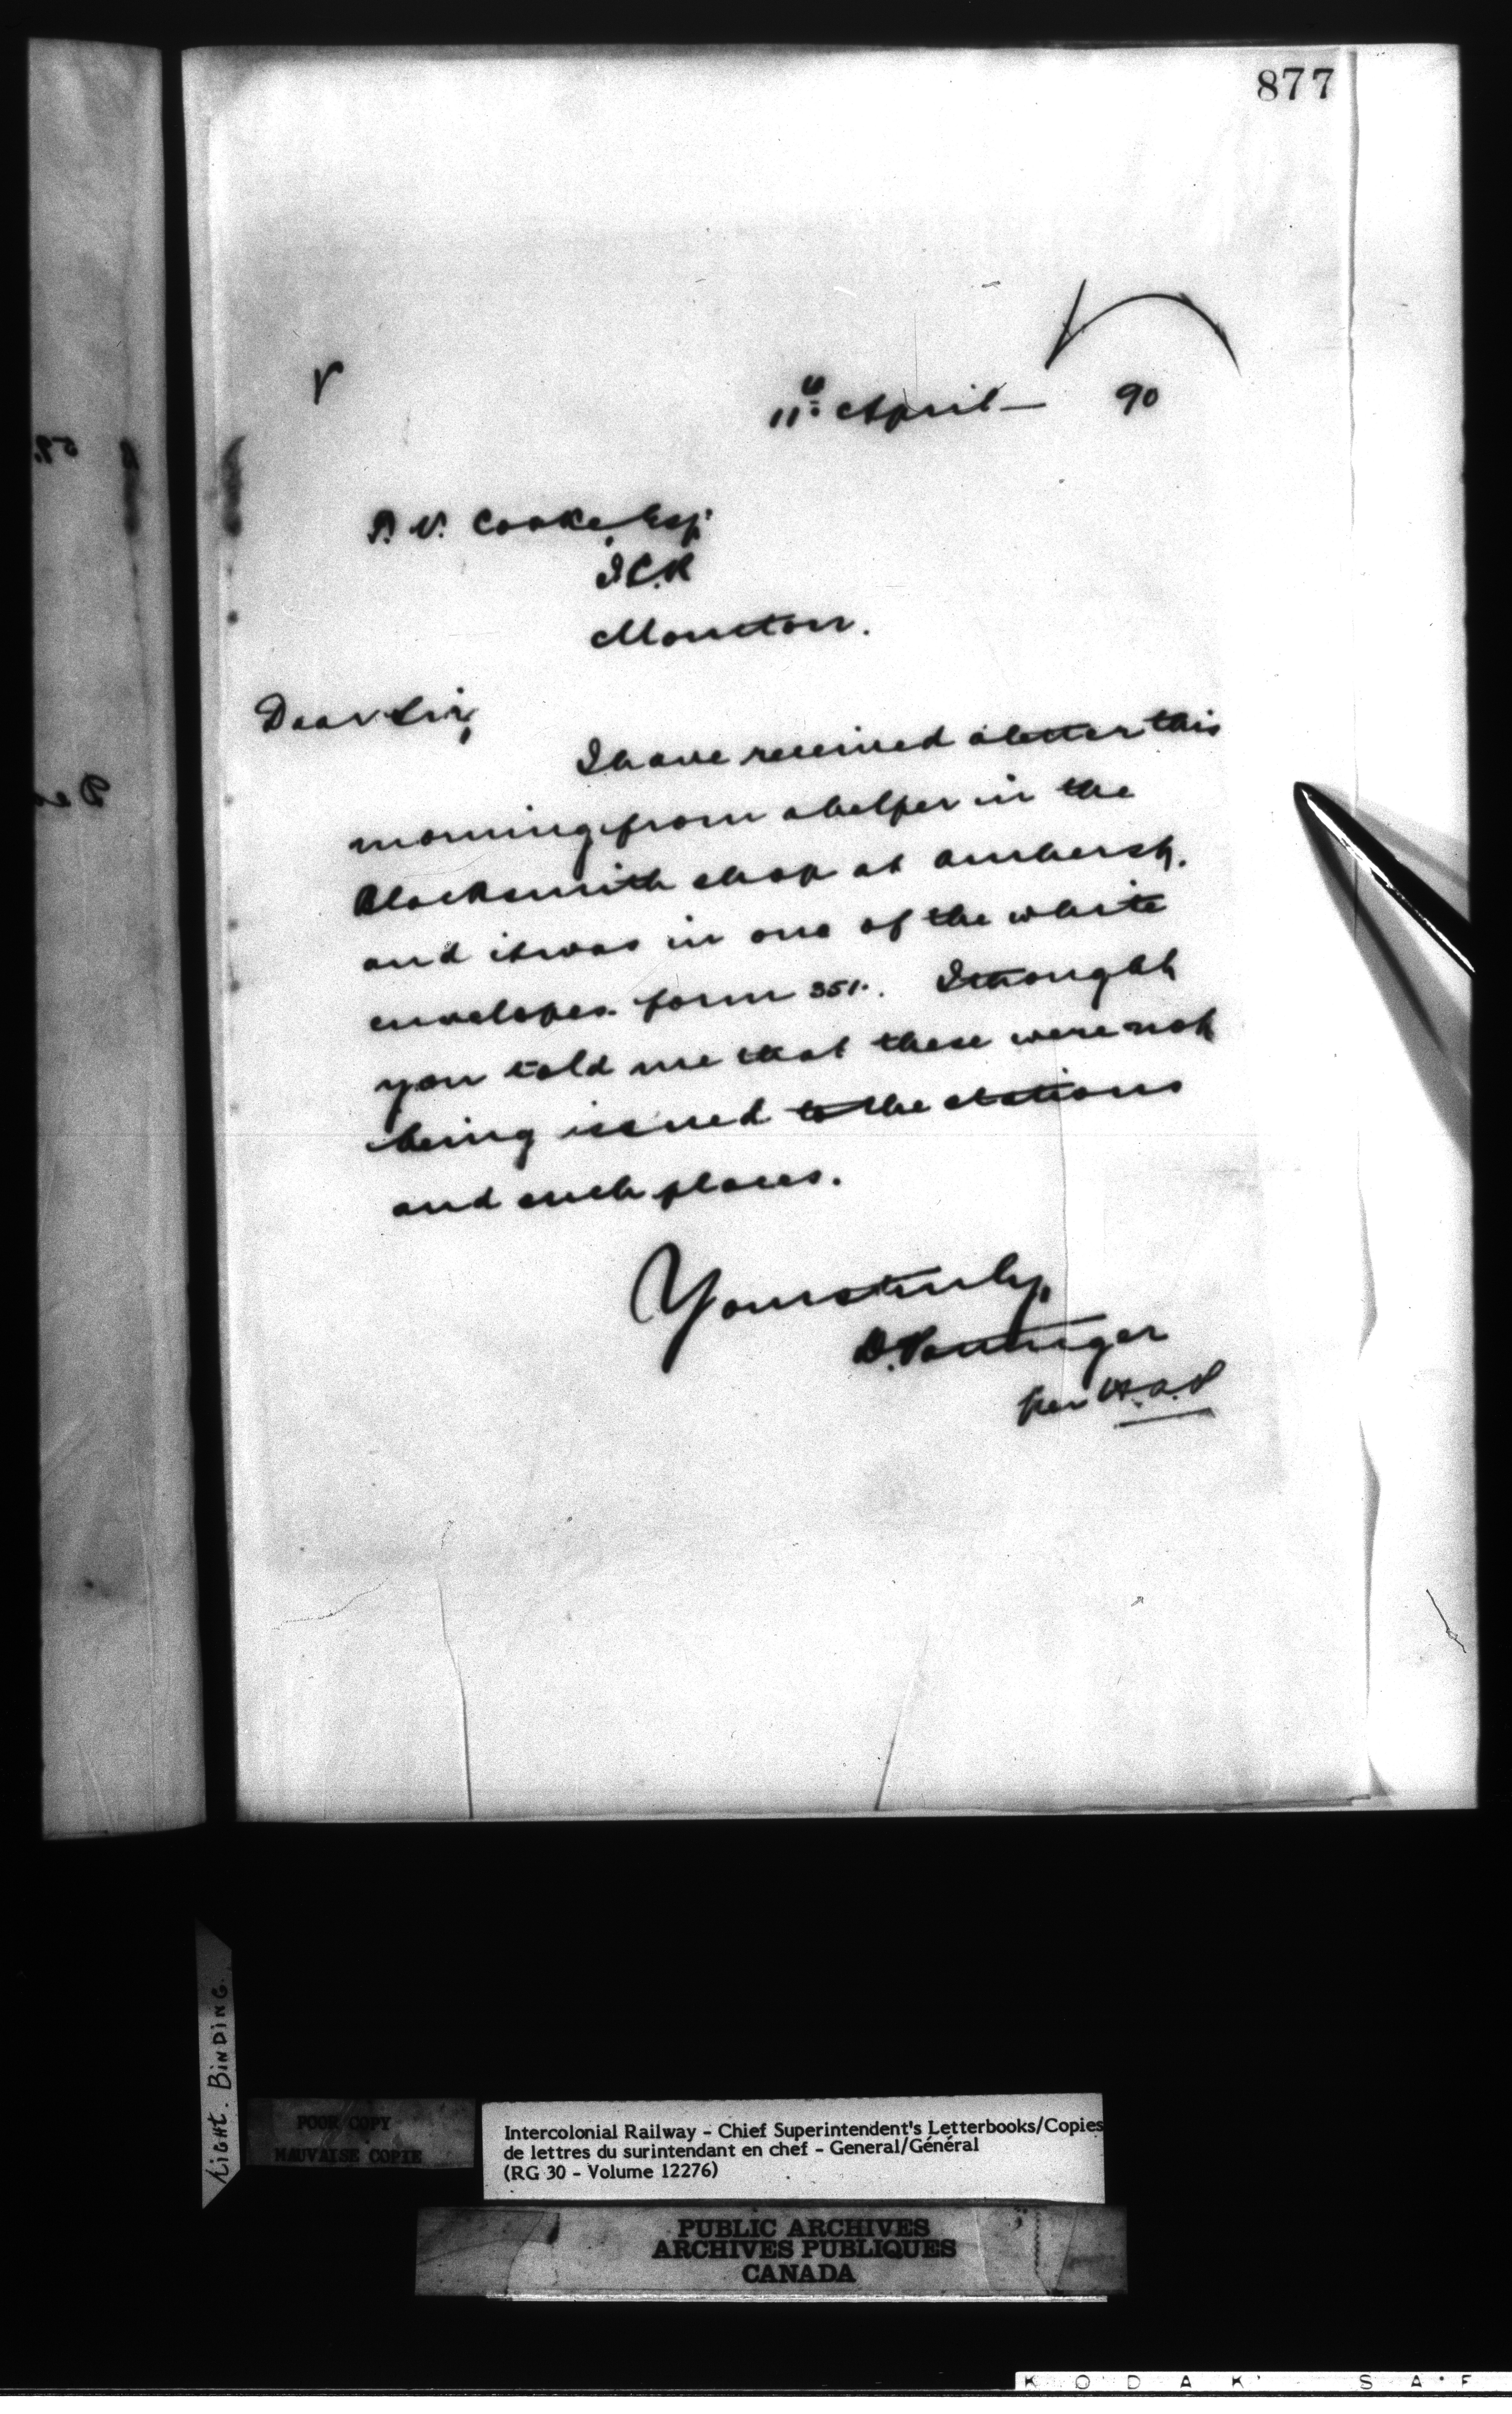 877
11th April — 90
P. V. Cooke, Esq.
I.C.R
Moncton.
Dear Sir,
I have received a letter this
morning from a helper in the
Blacksmith shop at Amherst,
and it was in one of the white
envelopes form 351. I thought
you told me that these were not
being issued to the stations
and such places.
Yours truly,
D. Pottinger
per
Tight. Binding.
POOR COPY
MAUVAISE COPIE
Intercolonial Railway - Chief Superintendent's Letterbooks/Copies
de lettres du surintendant en chef - General/Général
(RG 30 - Volume 12276)
PUBLIC ARCHIVES
ARCHIVES PUBLIQUES
CANADA
KODAK SAF